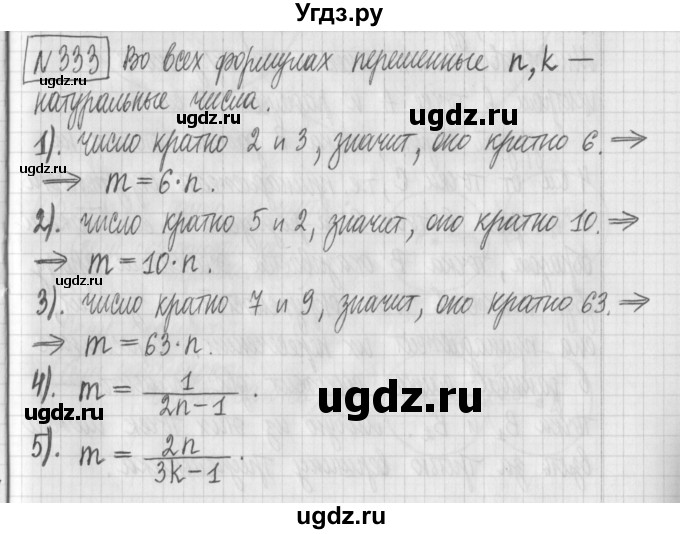 Угдз.ру
№333 Во всех формулах переменные n, k —
натуральные числа.
ugdz.ru
ugdz.ru
1). число кратно 2 и 3, значит, оно кратно 6. ⇒
⇒ m = 6·n.
ugdz.ru
2). число кратно 5 и 2, значит, оно кратно 10. ⇒
⇒ m = 10·n.
ugdz.ru
3). число кратно 7 и 9, значит, оно кратно 63. ⇒
⇒ m = 63·n.
4). m = 1 / (2n−1).
ugdz.ru
ugdz.ru
5). m = 2n / (3k−1).
ugdz.ru
ugdz.ru